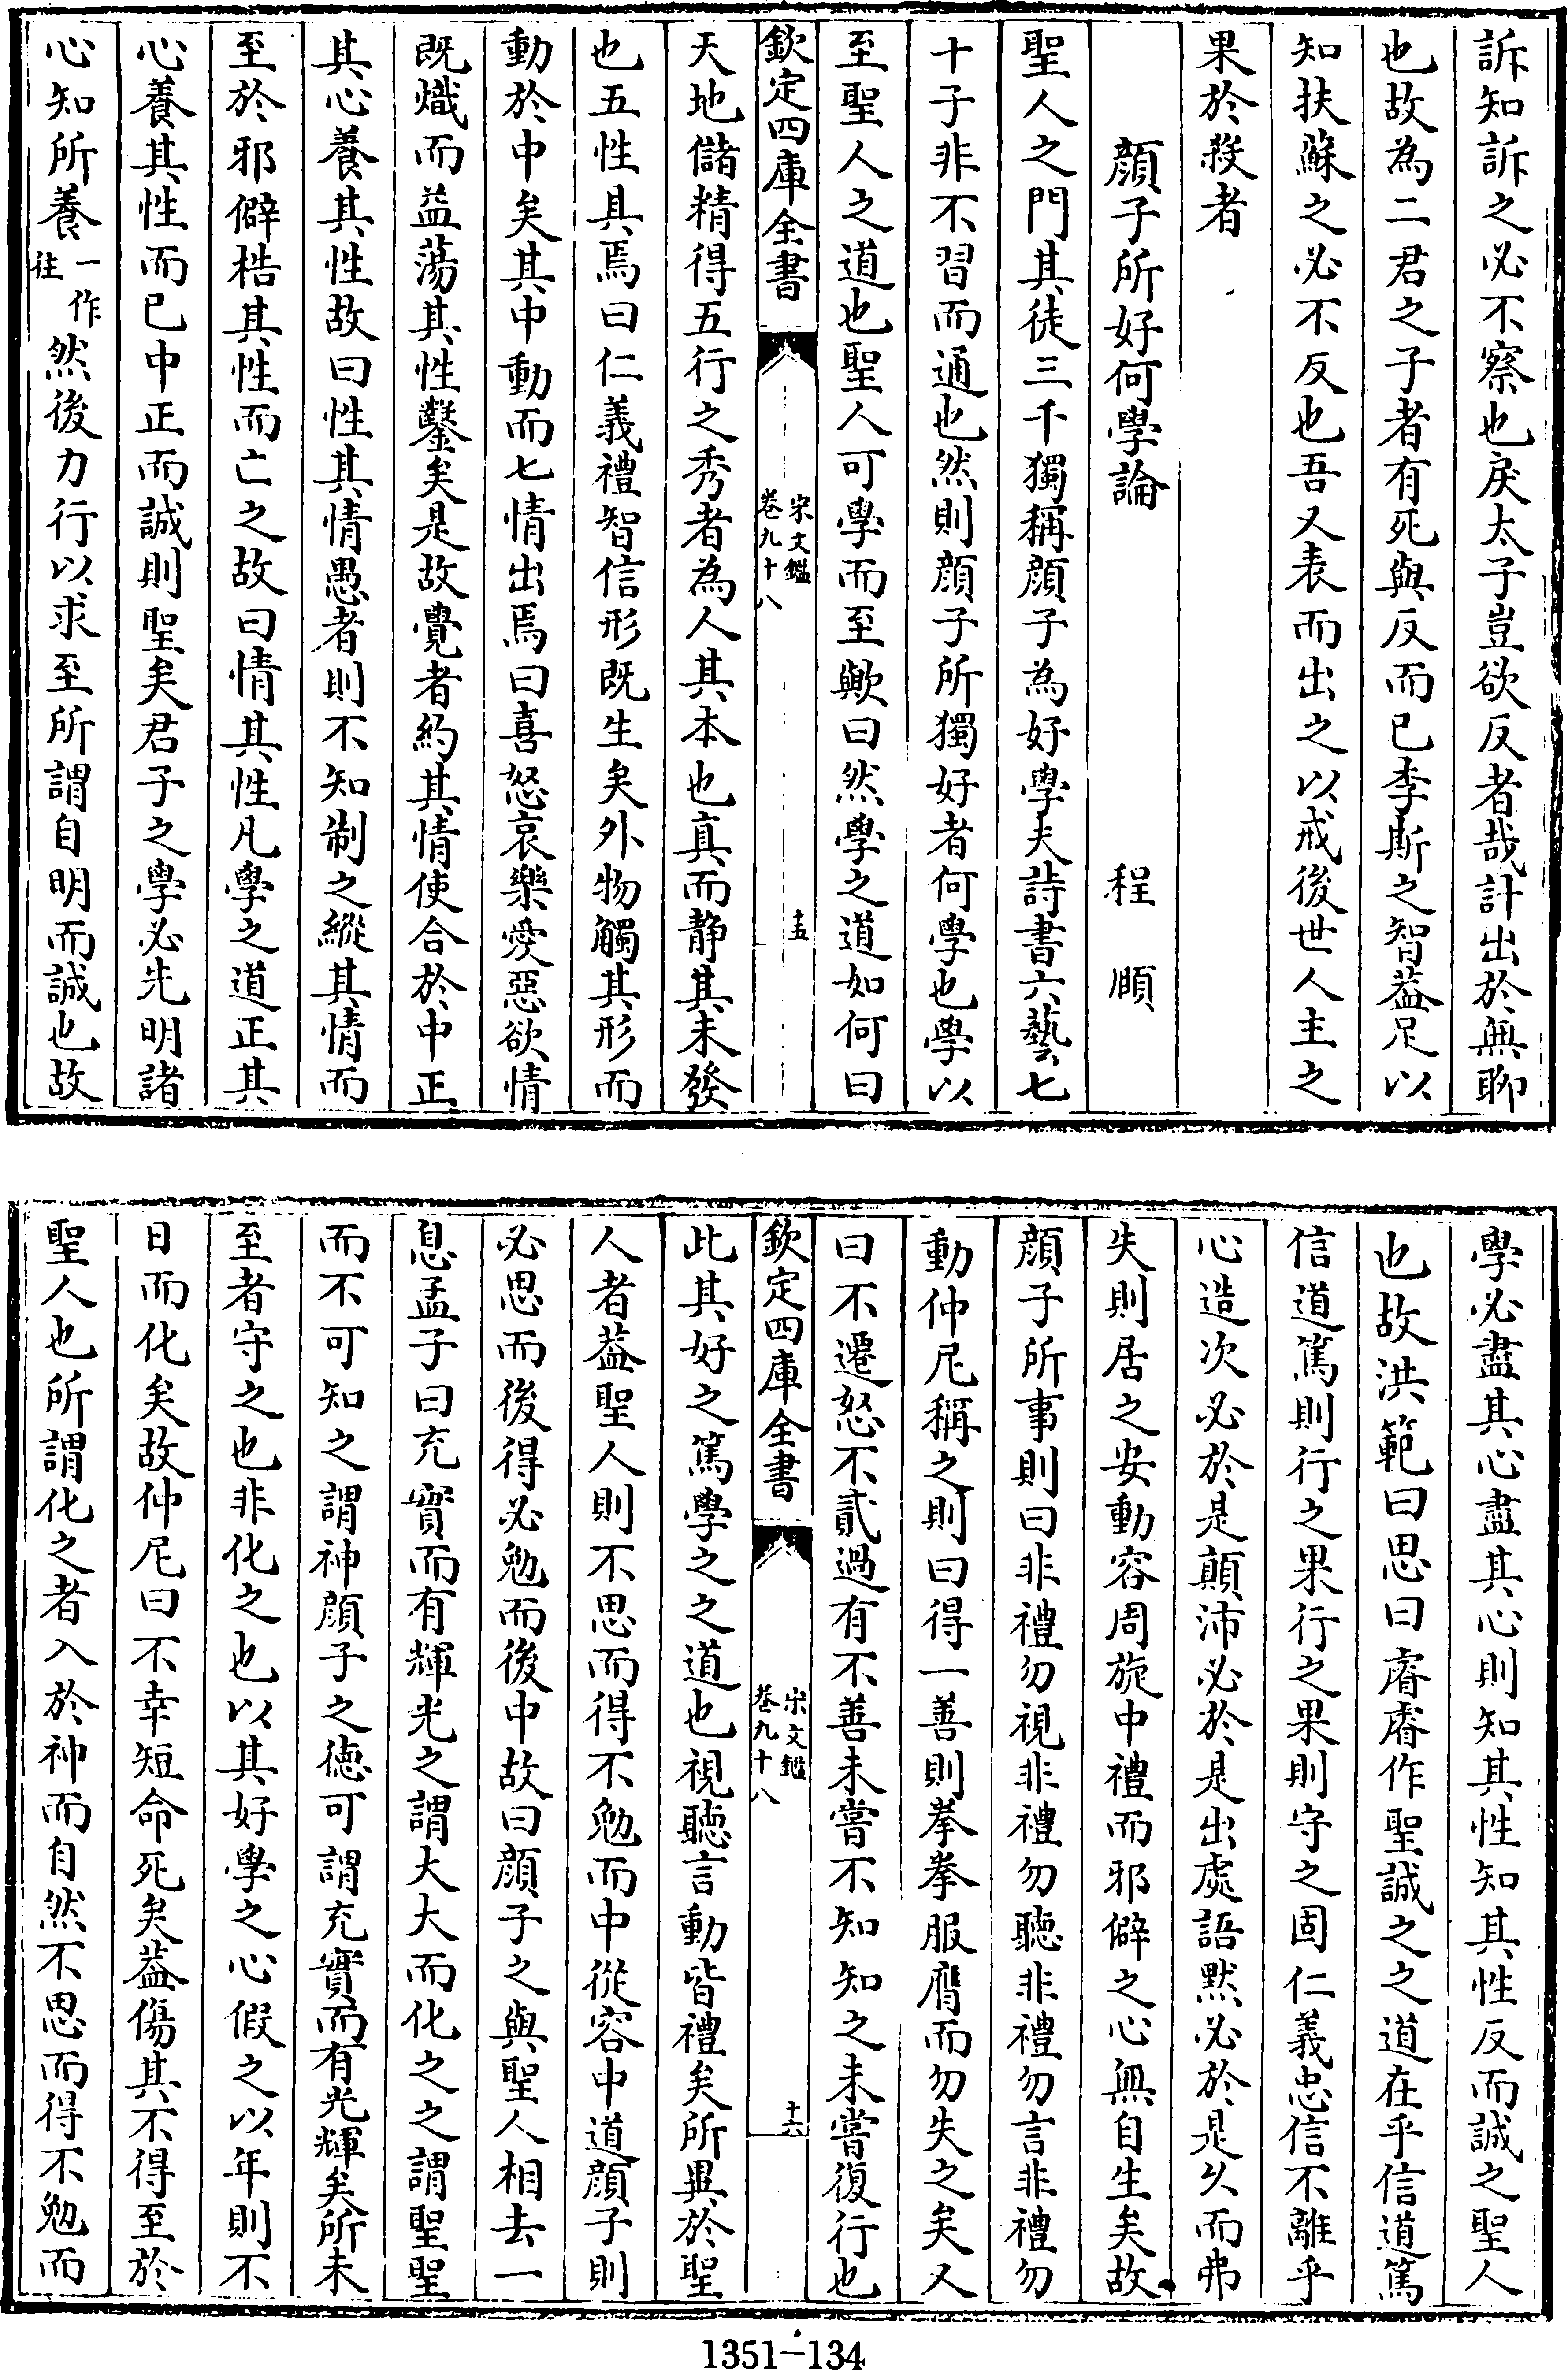 訴知訴之必不察也戾太子豈欲反者哉計出於無聊
也故為二君之子者有死與反而已李斯之智葢足以
知扶蘇之必不反也吾又表而出之以戒後世人主之
果於殺者
顔子所好何學論　程頤
聖人之門其徒三千獨稱顔子為好學夫詩書六藝七
十子非不習而通也然則顔子所獨好者何學也學以
至聖人之道也聖人可學而至歟曰然學之道如何曰
欽定四庫全書　宋文鑑卷九十八　十五
天地儲精得五行之秀者為人其本也真而静其未發
也五性具焉曰仁義禮智信形既生矣外物觸其形而
動於中矣其中動而七情出焉曰喜怒哀樂愛惡欲情
既熾而益蕩其性鑿矣是故覺者約其情使合於中正
其心養其性故曰性其情愚者則不知制之縱其情而
至於邪僻梏其性而亡之故曰情其性凡學之道正其
心養其性而已中正而誠則聖矣君子之學必先明諸
心知所養一作往然後力行以求至所謂自明而誠也故
學必盡其心盡其心則知其性知其性反而誠之聖人
也故洪範曰思曰睿睿作聖誠之之道在乎信道篤
信道篤則行之果行之果則守之固仁義忠信不離乎
心造次必於是顛沛必於是出處語黙必於是久而弗
失則居之安動容周旋中禮而邪僻之心無自生矣故
顔子所事則曰非禮勿視非禮勿聽非禮勿言非禮勿
動仲尼稱之則曰得一善則拳拳服膺而勿失之矣又
曰不遷怒不貳過有不善未嘗不知知之未嘗復行也
欽定四庫全書　宋文鑑卷九十八　十六
此其好之篤學之之道也視聽言動皆禮矣所異於聖
人者葢聖人則不思而得不勉而中從容中道顔子則
必思而後得必勉而後中故曰顔子之與聖人相去一
息孟子曰充實而有輝光之謂大大而化之之謂聖聖
而不可知之謂神顔子之徳可謂充實而有光輝矣所未
至者守之也非化之也以其好學之心假之以年則不
日而化矣故仲尼曰不幸短命死矣葢傷其不得至於
聖人也所謂化之者入於神而自然不思而得不勉而
1351-134